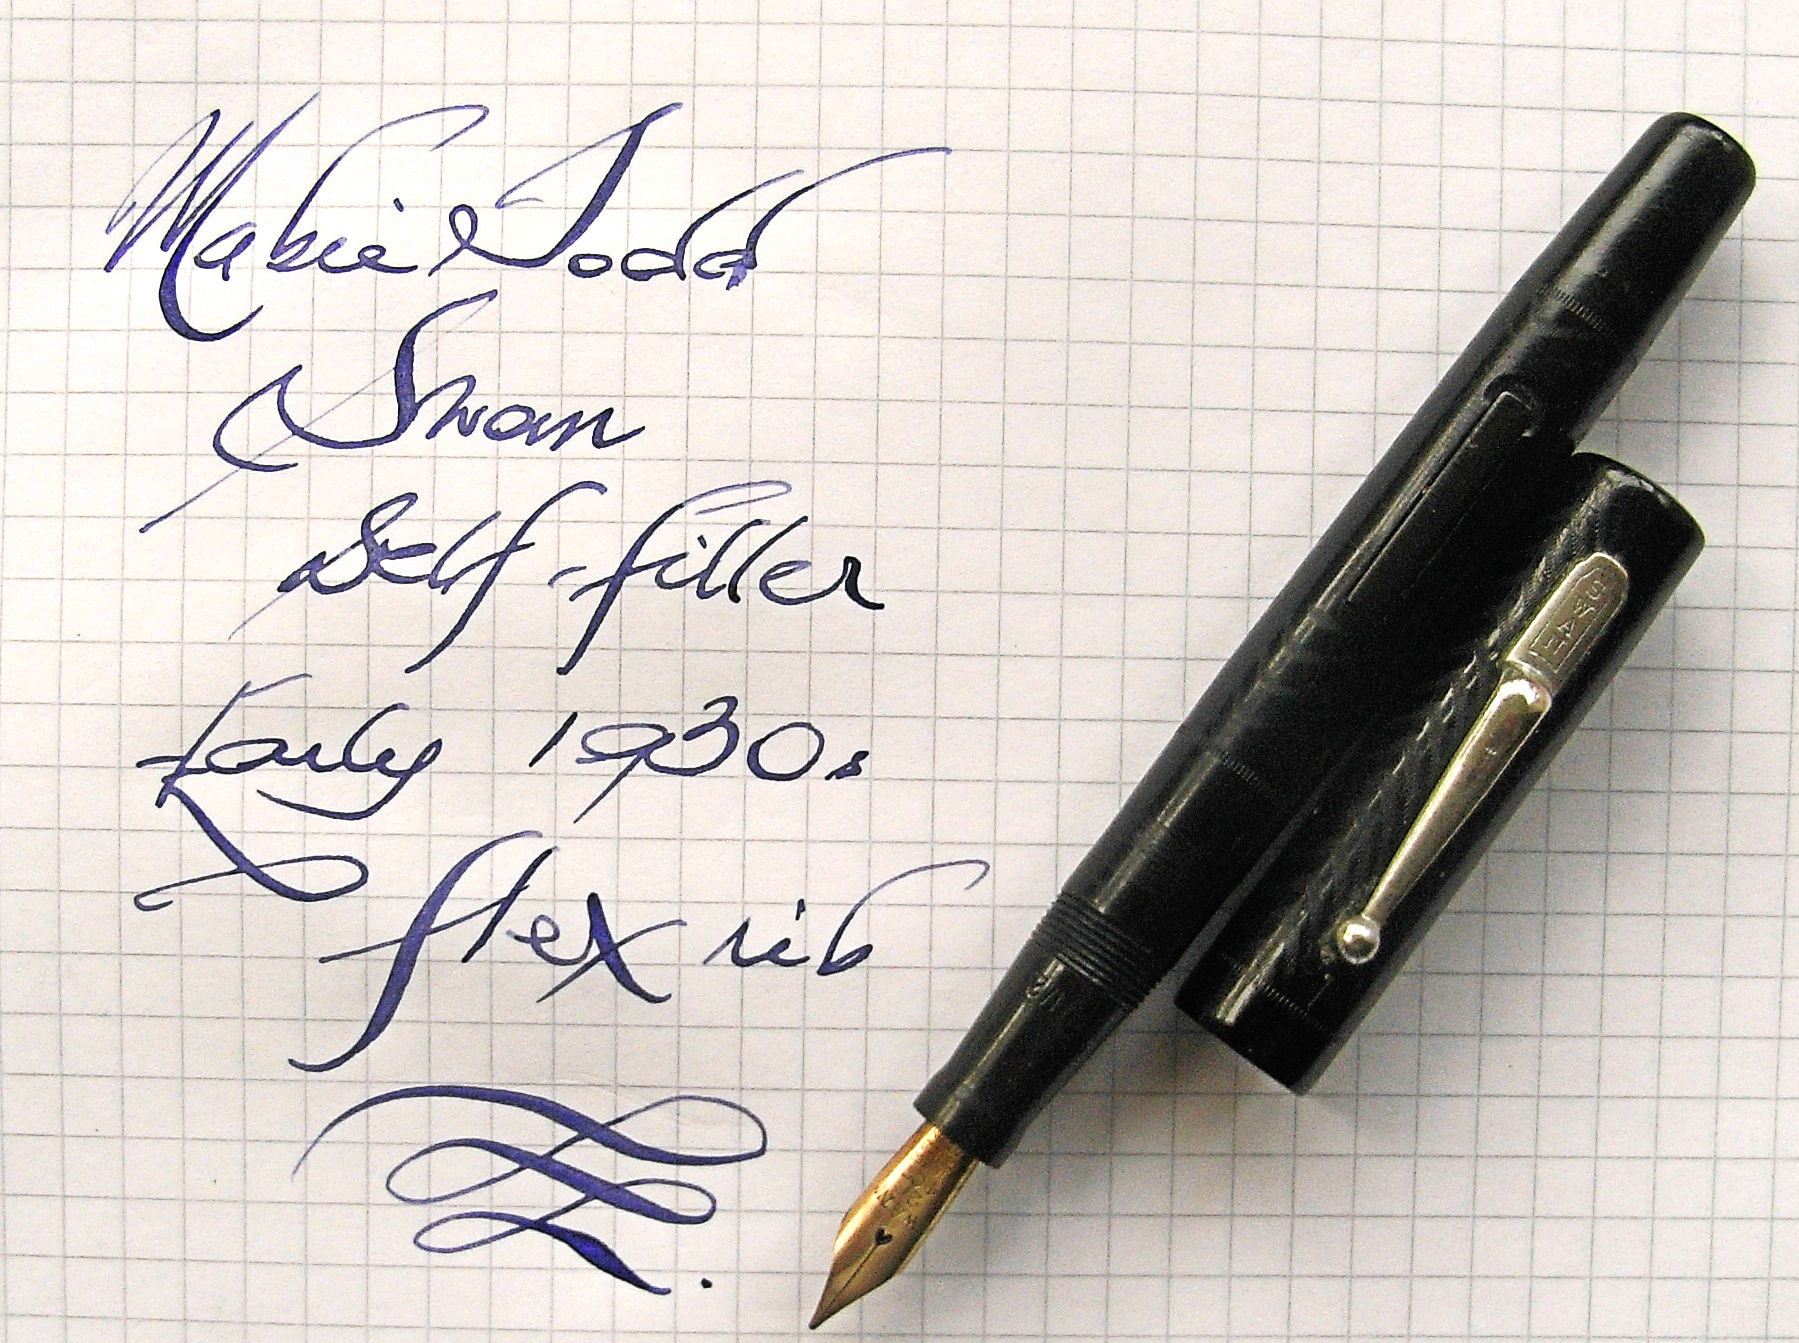 Mabie & Todd
Swan
Self-filler
Early 1930s
flex nib
SWAN